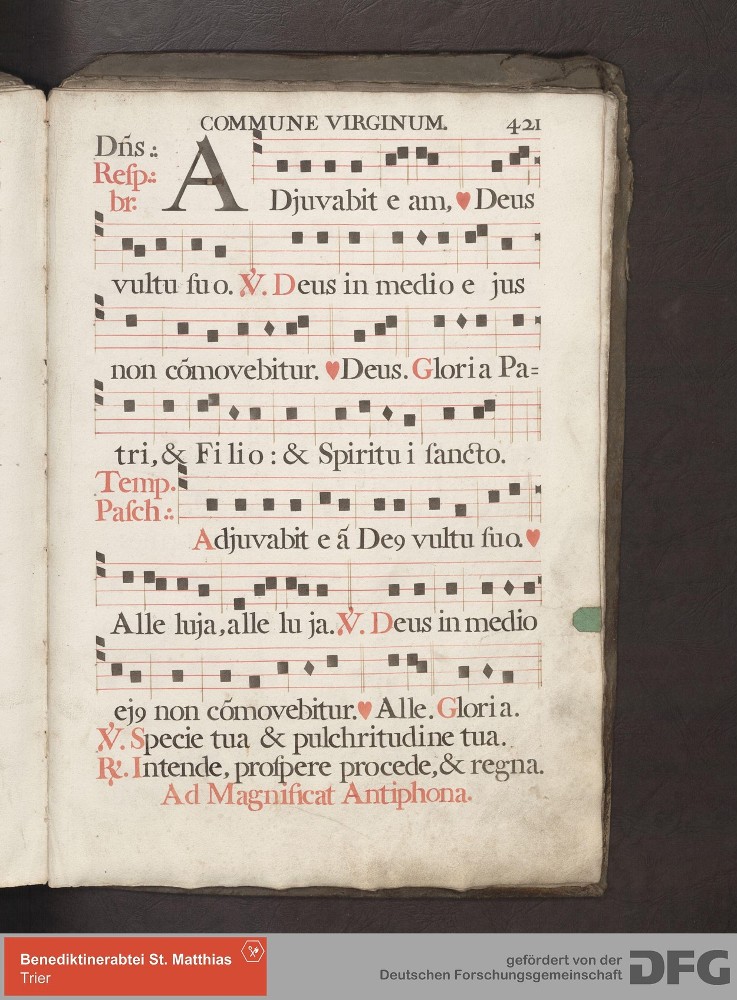 COMMUNE VIRGINUM. 421
Dñs:.
Resp:.
br:
A Djuvabit e am, ♥ Deus
vultu suo. ℣. Deus in medio e jus
non cõmovebitur. ♥ Deus. Gloria Pa=
tri, & Filio: & Spiritui sancto.
Temp.
Pasch:.
Adjuvabit e ã De9 vultu suo. ♥
Alle luja, alle lu ja. ℣. Deus in medio
ej9 non cõmovebitur. ♥ Alle. Gloria.
℣. Specie tua & pulchritudine tua.
℟. Intende, prospere procede, & regna.
Ad Magnificat Antiphona.
Benediktinerabtei St. Matthias
Trier
gefördert von der
Deutschen Forschungsgemeinschaft
DFG